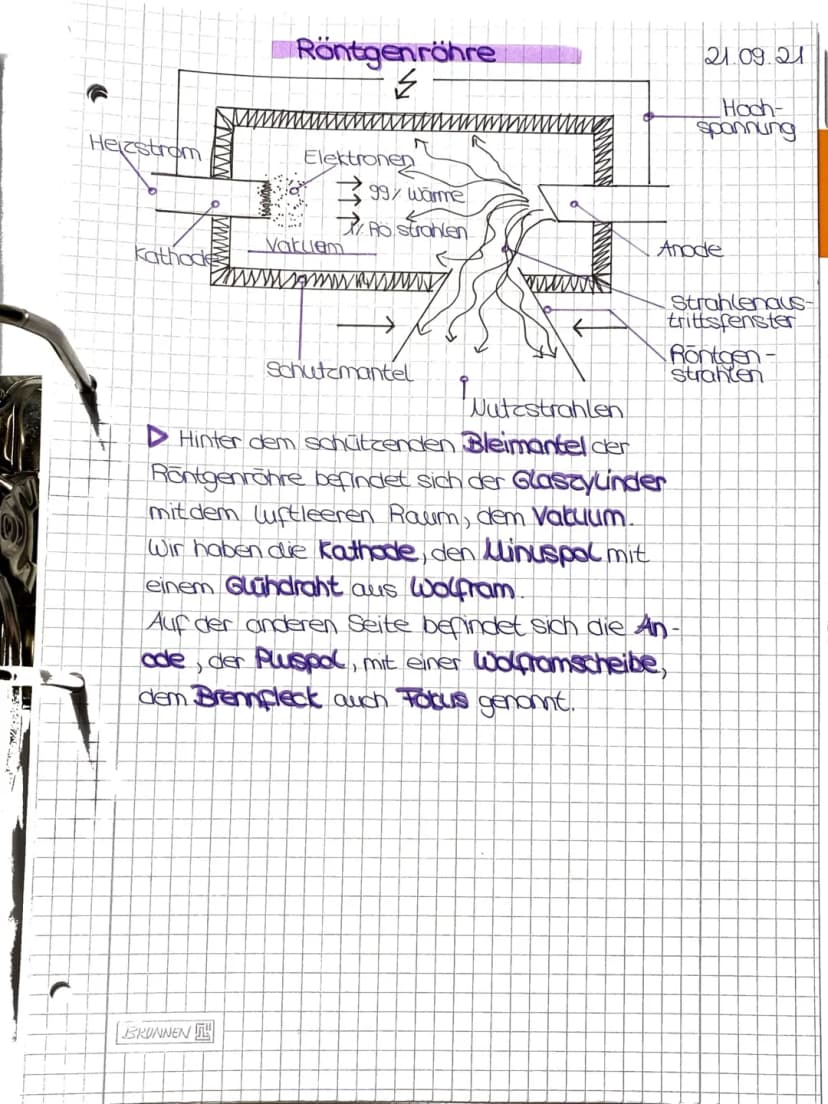 Röntgenröhre
21.09.21
Hoch-
spannung
Heizstrom
Elektronen
99% Wärme
1% Rö strahlen
Vakuum
Kathode
Anode
Strahlenaus-
trittsfenster
Röntgen-
strahlen
Schutzmantel
Nutzstrahlen
Hinter dem schützenden Bleimantel der
Röntgenröhre befindet sich der Glaszylinder
mit dem luftleeren Raum, dem Vakuum.
Wir haben die Kathode, den Minuspol mit
einem Glühdraht aus Wolfram.
Auf der anderen Seite befindet sich die An-
ode, der Pluspol, mit einer Wolframscheibe,
dem Brennfleck auch Fokus genannt.
BRUNNEN